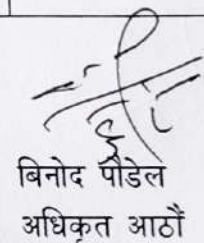 बिनोद पौडेल
अधिकृत आठौं